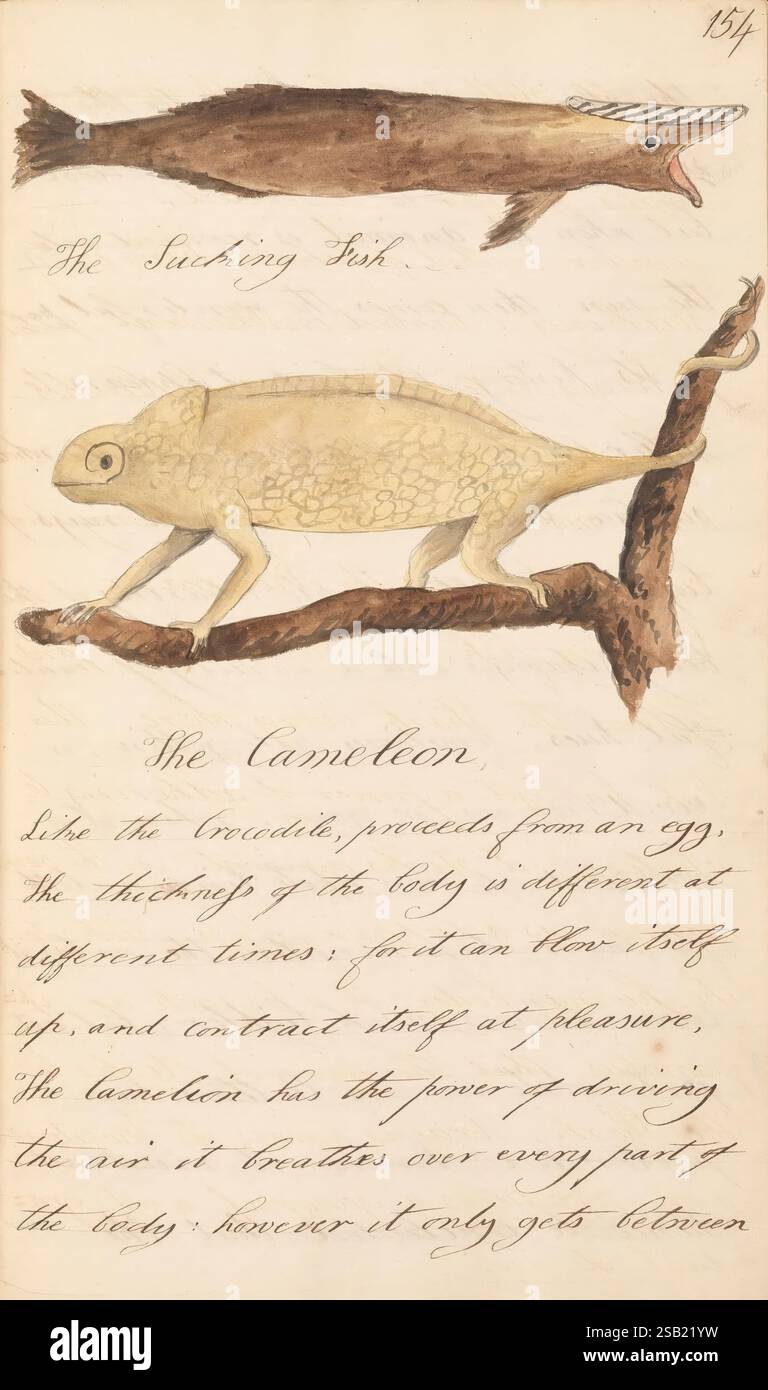 154
The Sucking Fish.
The Cameleon,
Like the Crocodile, proceeds from an egg,
The thickneſs of the body is different at
different times: for it can blow itself
up, and contract itself at pleasure,
The Camelion has the power of driving
the air it breathes over every part of
the body: however it only gets between
alamy
Image ID: 2SB21YW
www.alamy.com